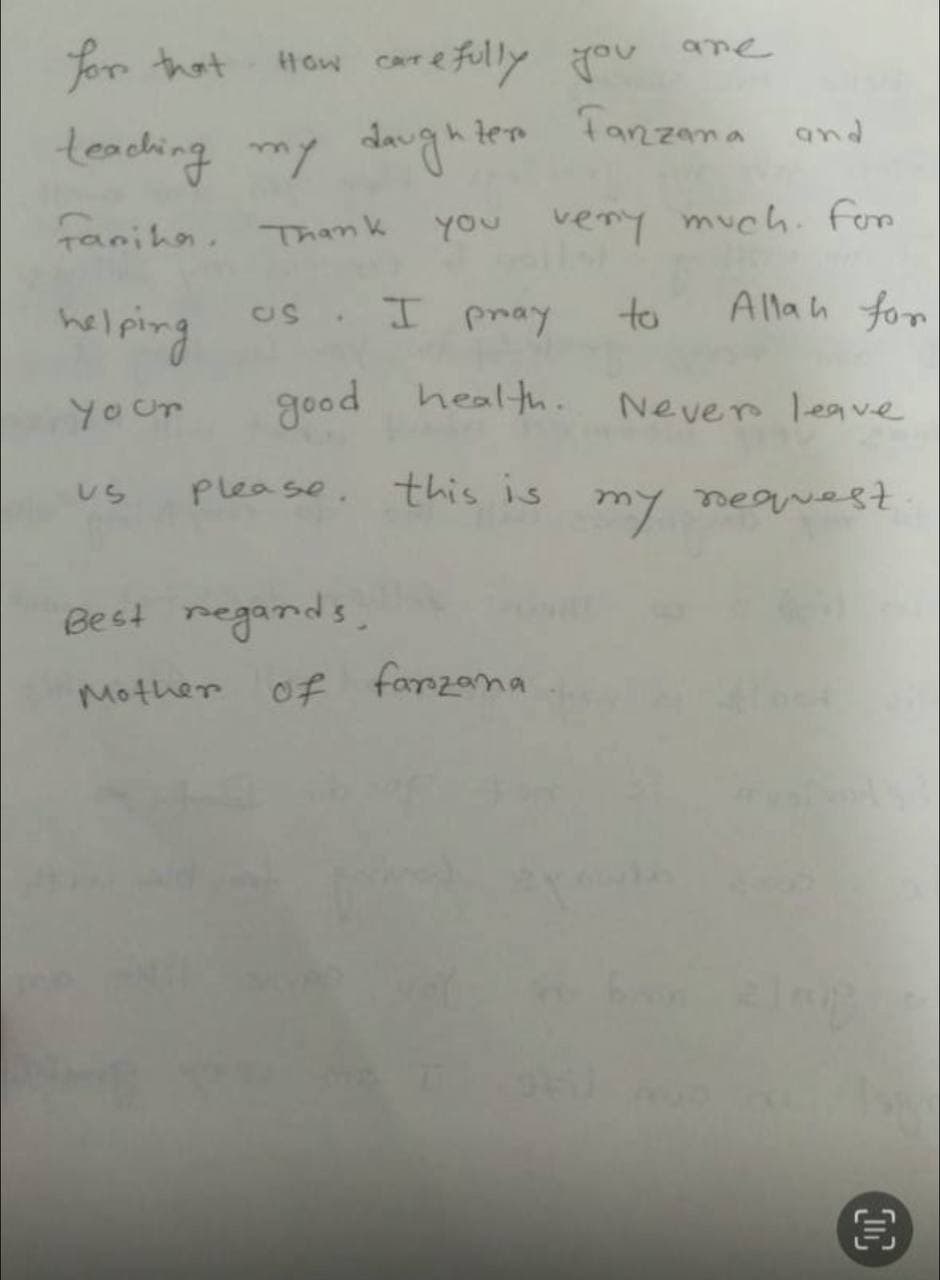 for that. How carefully you are
teaching my daughter Farzana and
Fariha. Thank you very much. For
helping us. I pray to Allah for
your good health. Never leave
us please. this is my request.
Best regards,
Mother of farzana.